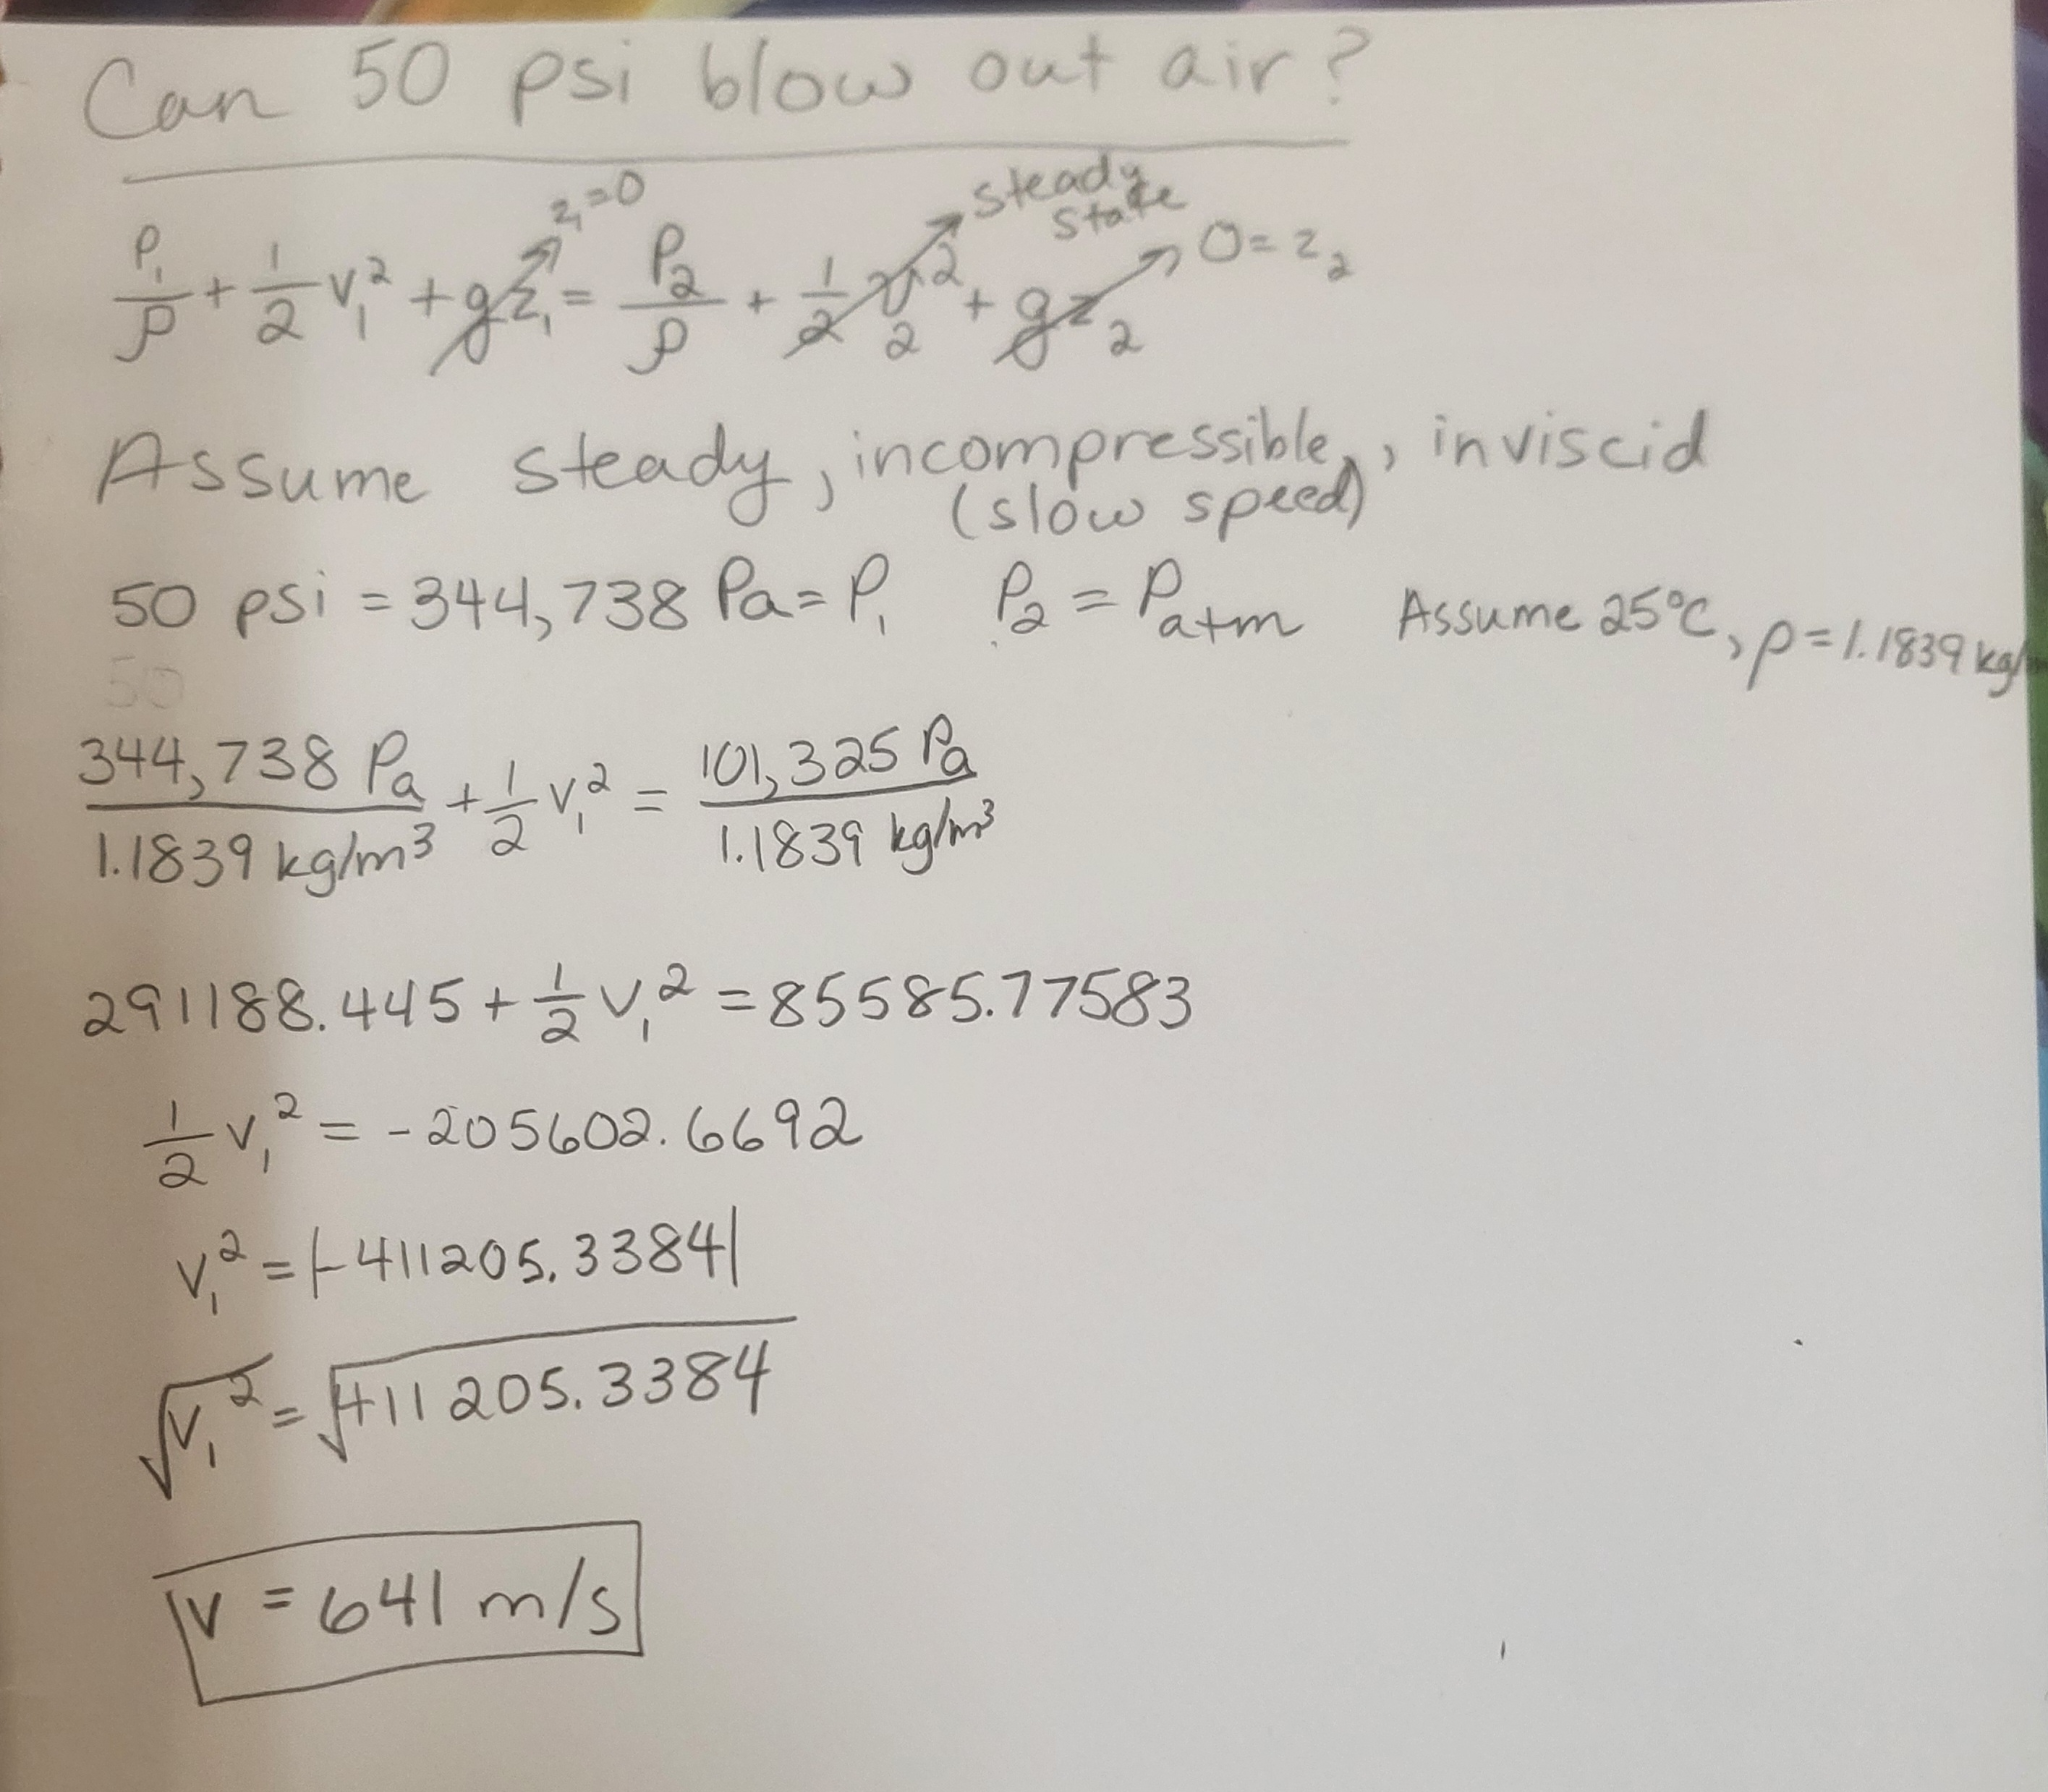 Can 50 psi blow out air?
z₁=0 steady state 0=z₂
P₁/ρ + 1/2 v₁² + gz₁ = P₂/ρ + 1/2 v₂² + gz₂
Assume steady, incompressible, inviscid
(slow speed)
50 psi = 344,738 Pa = P₁ P₂ = Patm Assume 25°C, ρ=1.1839 kg/
50
344,738 Pa/1.1839 kg/m³ + 1/2 v₁² = 101,325 Pa/1.1839 kg/m³
291188.445 + 1/2 v₁² = 85585.77583
1/2 v₁² = -205602.6692
v₁² = |-411205.3384|
√v₁² = √411205.3384
v = 641 m/s